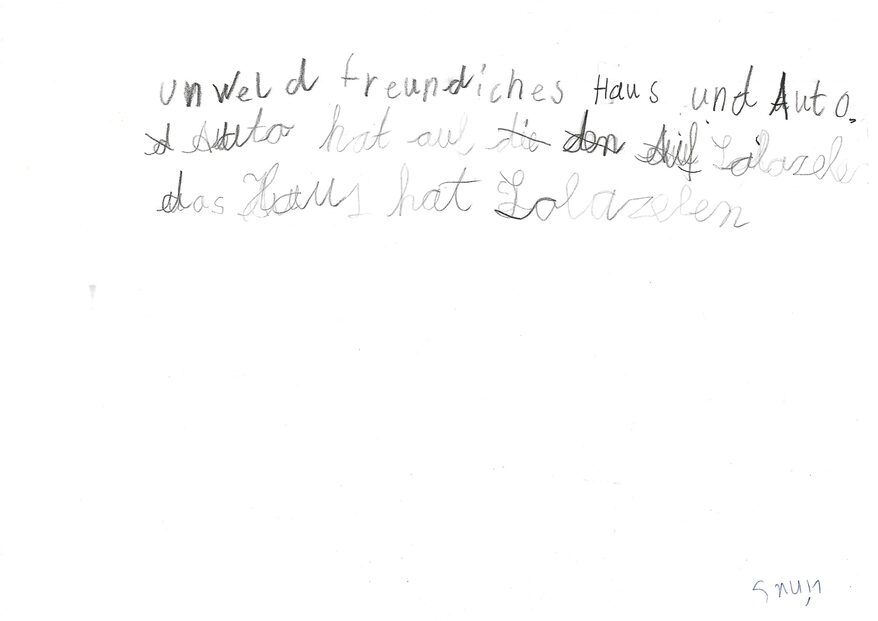 unweld freundiches Haus und Auto.
Auto hat auf die den Auf Solazele
das Haus hat Solazelen
Linus